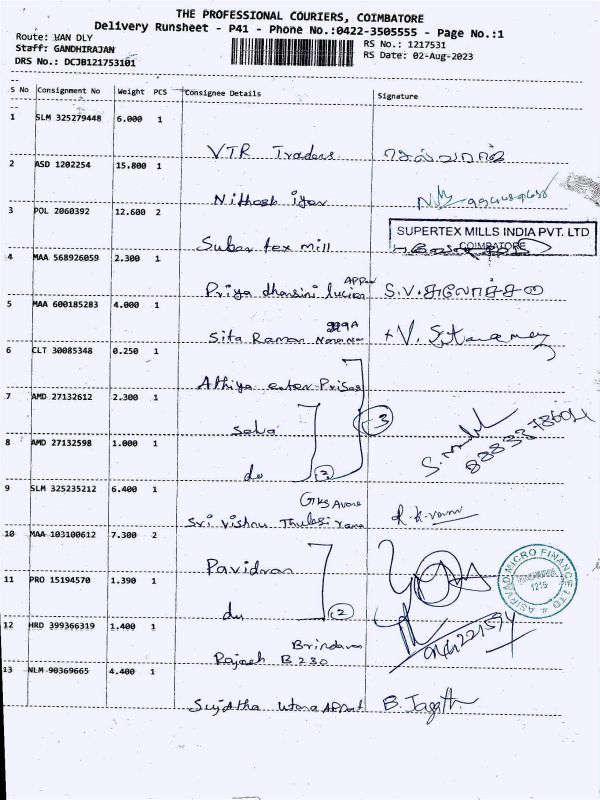 THE PROFESSIONAL COURIERS, COIMBATORE
Delivery Runsheet - P41 - Phone No.:0422-3505555 - Page No.:1
Route: VAN DLY
Staff: GANDHIRAJAN
DRS No.: DCJB121753101
RS No.: 1217531
RS Date: 02-Aug-2023
S No Consignment No Weight PCS Consignee Details Signature
1 SLM 325279448 6.000 1
VTR Traders செல்வராஜ்
2 ASD 1202254 15.800 1
Nithosh iyer
3 POL 2060392 12.600 2
Suber tex mill SUPERTEX MILLS INDIA PVT. LTD
COIMBATORE
4 MAA 568926059 2.300 1
Priya dharsini lucien S.V.சுலோச்சனா
5 MAA 600185283 4.000 1
Sita Raman
6 CLT 30085348 0.250 1
Athiya enter Prises
7 AMD 27132612 2.300 1
selva 3
8 AMD 27132598 1.000 1
do 8883378604
9 SLM 325235212 6.400 1
Sri vishnu Thulasi rama
10 MAA 103100612 7.300 2
Pavidran ASIRVAD MICRO FINANCE LTD
1215
11 PRO 15194570 1.390 1
do 2
12 HRD 399366319 1.400 1
Brindavan
Rajesh B 230
13 NLM 90369665 4.400 1
Sujatha B. Jagath